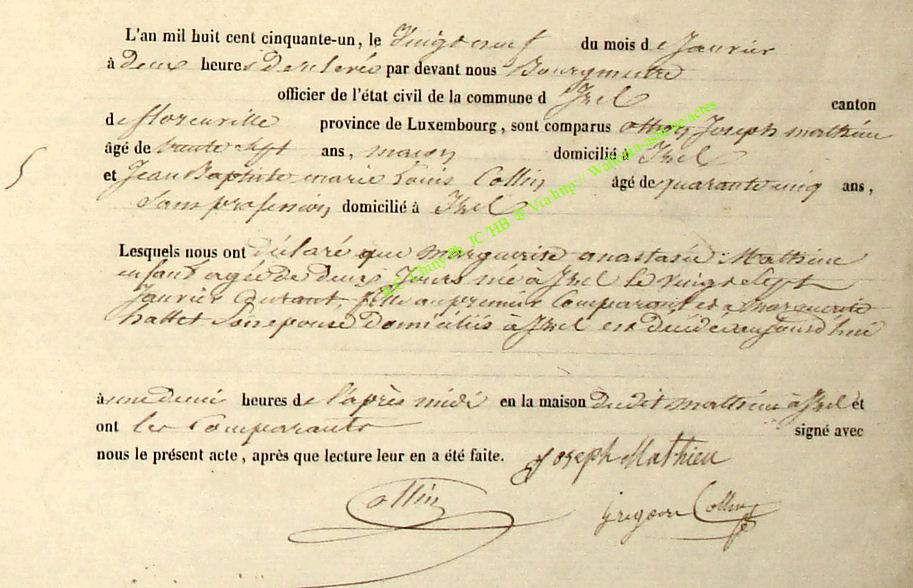 L'an mil huit cent cinquante-un, le Vingt neuf du mois de Janvier
à deux heures de relevée par devant nous Bourgmestre
officier de l'état civil de la commune d' Izel canton
de florenville province de Luxembourg, sont comparus Joseph mathieu
âgé de trente sept ans, maçon domicilié à Izel
et Jean Baptiste marie Louis Collin âgé de quarante cinq ans,
Sans profession domicilié à Izel
Lesquels nous ont déclaré que marguerite anastasie Mathieu
enfant agée de deux Jours née à Izel le vingt Sept
Janvier Courant, fille au premier Comparant et a marguerite
hattet Son epouse domiciliés à Izel est décédé aujourd'hui
à une demie heures de l'après midi en la maison dudit mathieu à Izel et
ont les Comparants signé avec
nous le présent acte, après que lecture leur en a été faite. Joseph Mathieu
Collin Gregoire Collin
Chiny JC HB & Via http://Wallonia-asbl-be.actes
5